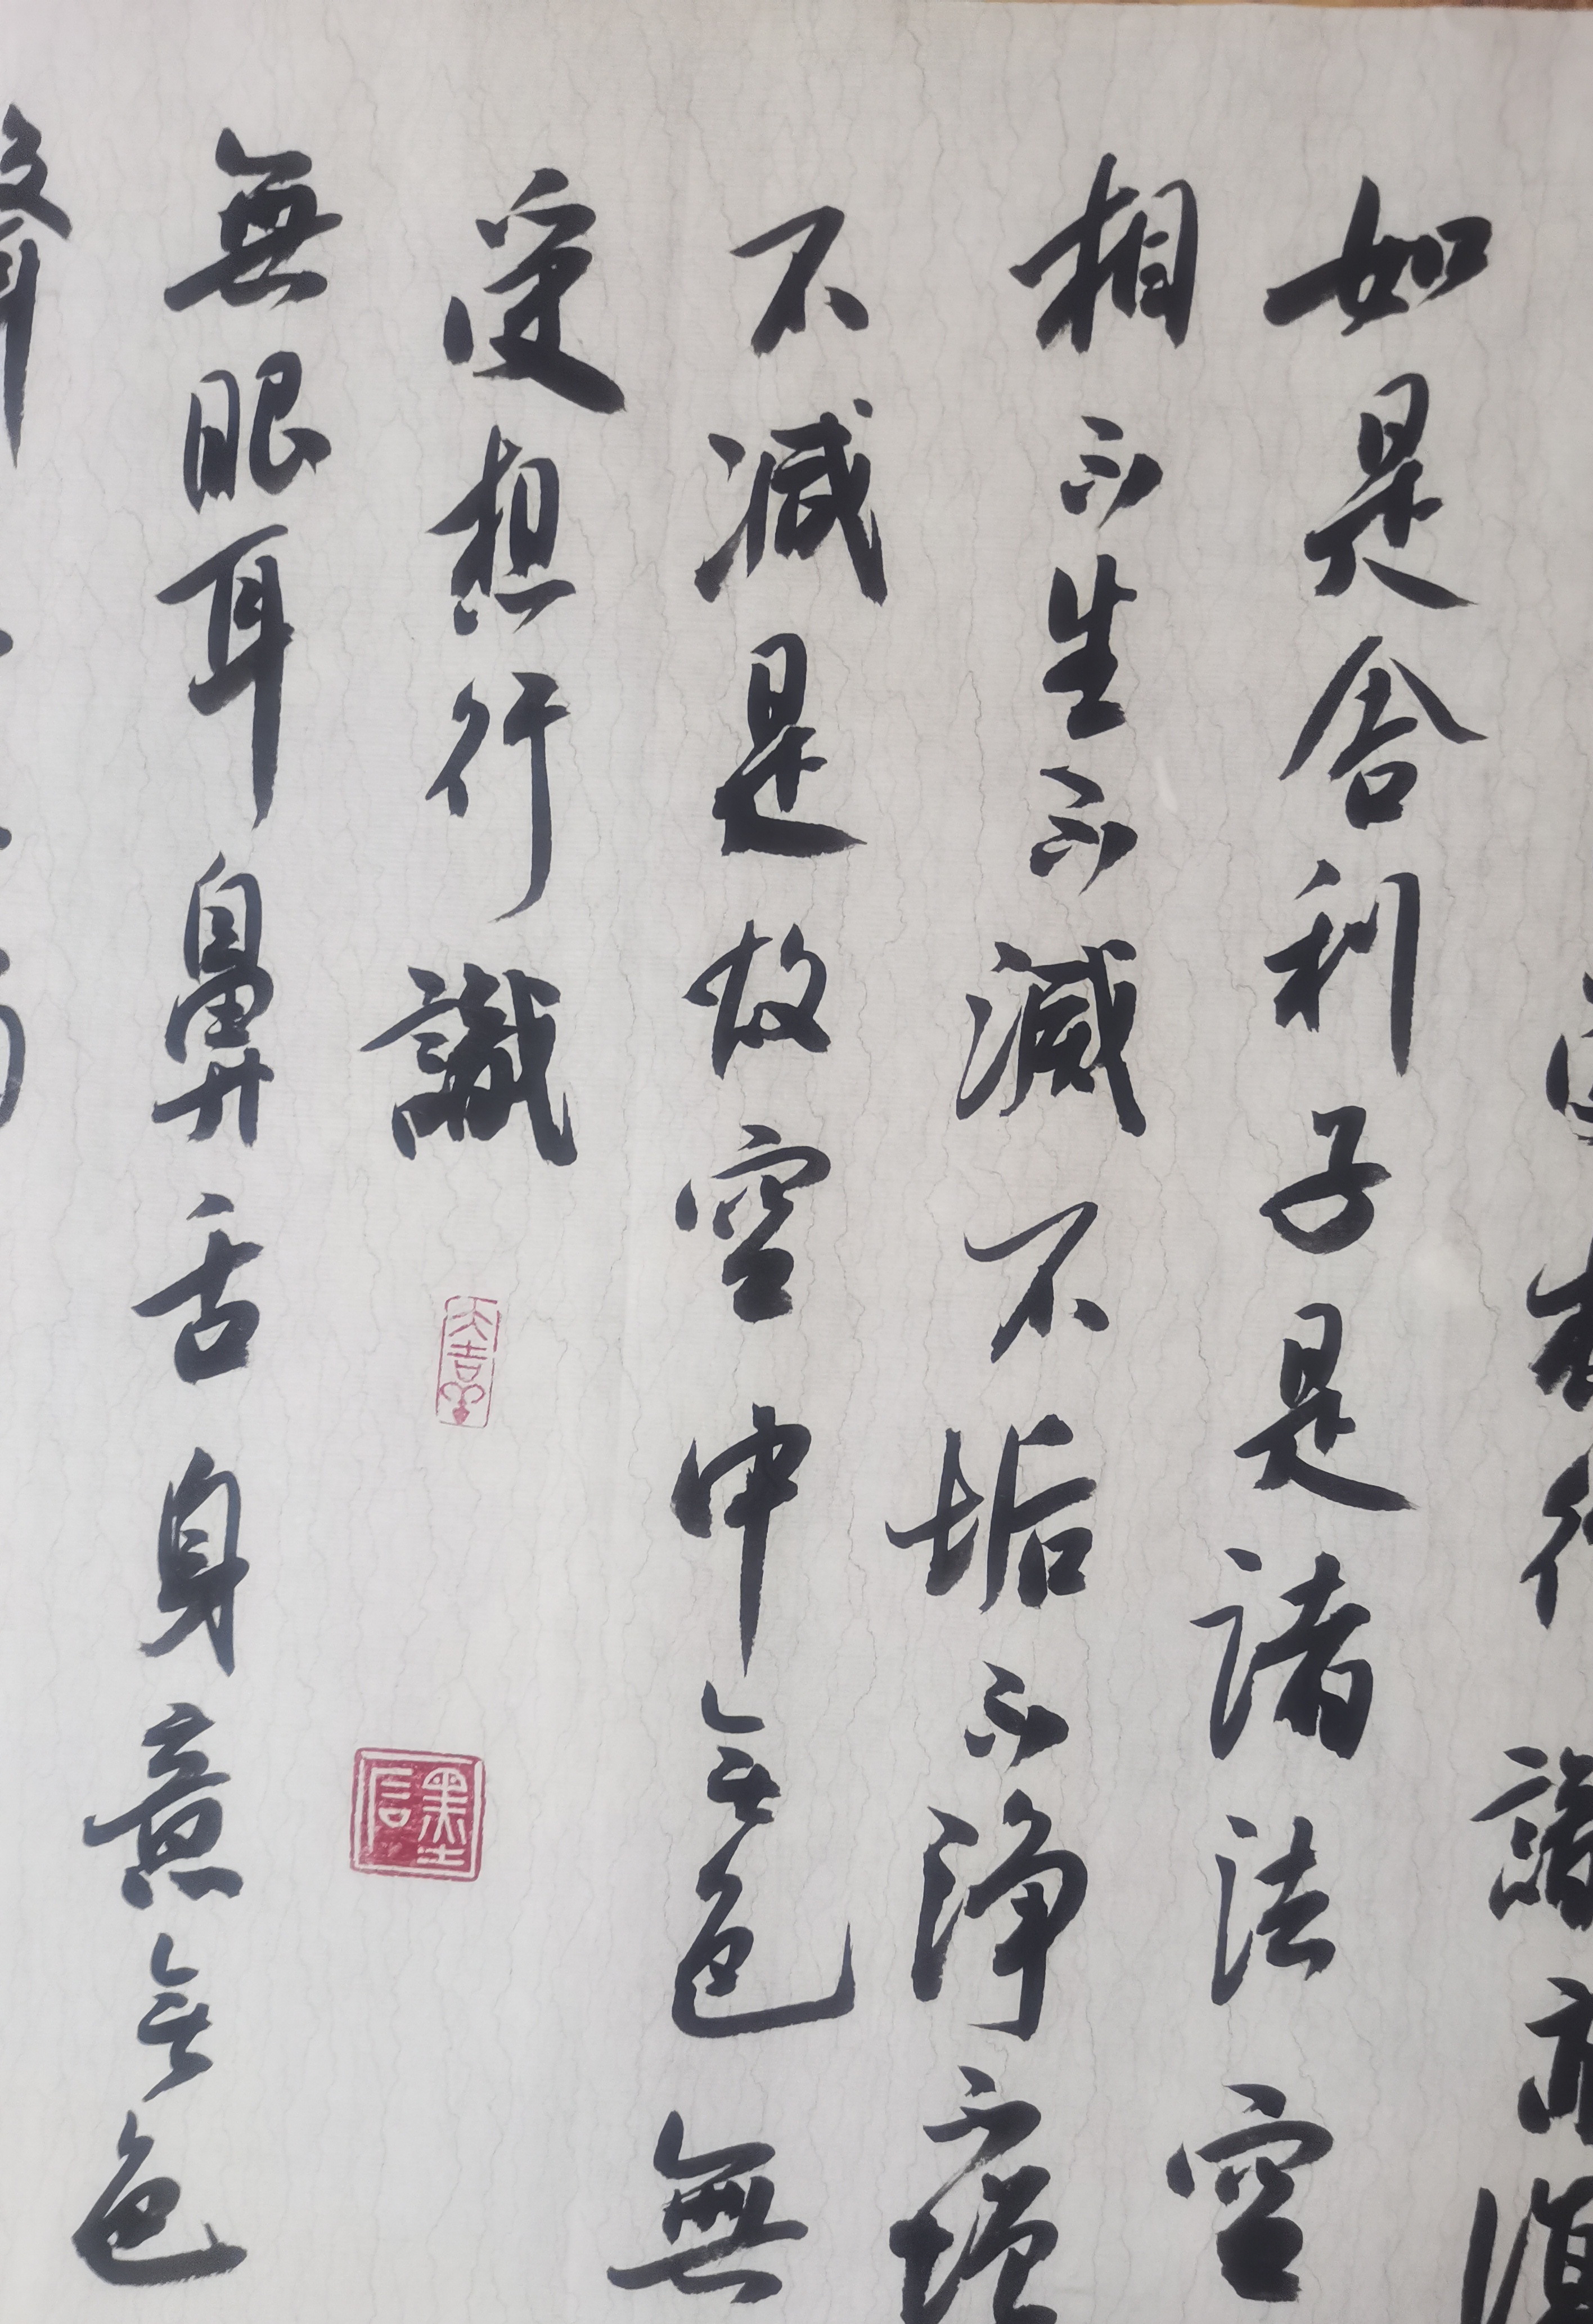 行識亦復
如是舍利子是諸法空
相不生不滅不垢不淨不增
不減是故空中無色無
受想行識
大吉羊
無眼耳鼻舌身意無色